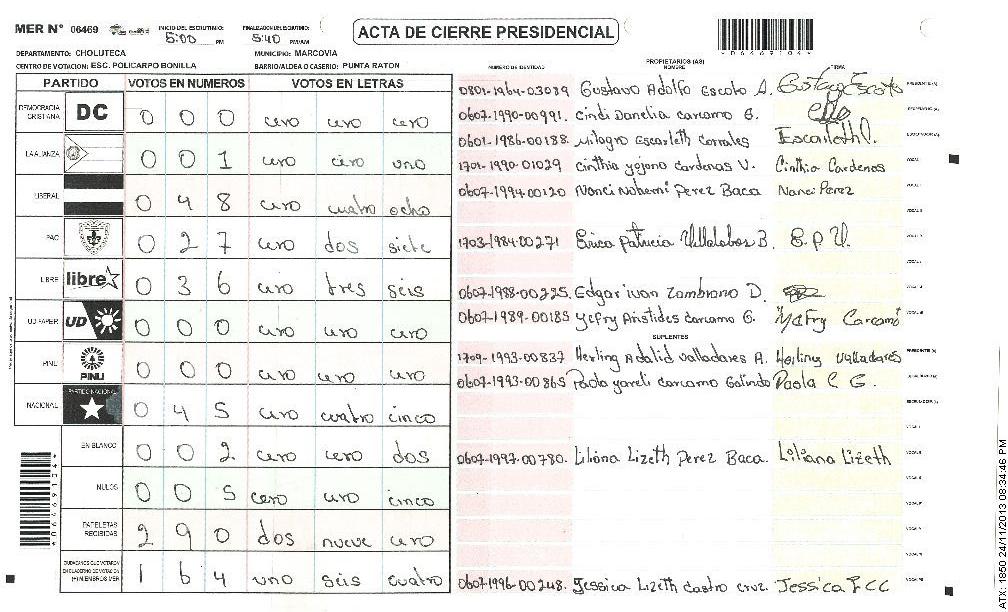 MER N° 06469
INICIO DEL ESCRUTINIO: 5:00 PM
FINALIZACION ESCRUTINIO: 5:40 PM/AM
ACTA DE CIERRE PRESIDENCIAL
*06469104*
DEPARTAMENTO: CHOLUTECA
MUNICIPIO: MARCOVIA
CENTRO DE VOTACION: ESC. POLICARPO BONILLA
BARRIO/ALDEA O CASERIO: PUNTA RATON
PARTIDO VOTOS EN NUMEROS VOTOS EN LETRAS
DEMOCRACIA CRISTIANA DC 0 0 0 cero cero cero
LA ALIANZA 0 0 1 cero cero uno
LIBERAL 0 4 8 cero cuatro ocho
PAC 0 2 7 cero dos siete
LIBRE libre 0 3 6 cero tres seis
UD FAPER UD 0 0 0 cero cero cero
PINU PINU 0 0 0 cero cero cero
NACIONAL PARTIDO NACIONAL 0 4 5 cero cuatro cinco
EN BLANCO 0 0 2 cero cero dos
NULOS 0 0 5 cero cero cinco
PAPELETAS RECIBIDAS 2 9 0 dos nueve cero
CIUDADANOS QUE VOTARON EN CUADERNO DE VOTACION (+) MIEMBROS MER 1 6 4 uno seis cuatro
PROPIETARIOS (AS)
NUMERO DE IDENTIDAD NOMBRE FIRMA
0801-1964-03089 Gustavo Adolfo Escoto A. Gustavo Escoto
0607-1990-00991. Cindi Danelia carcamo G.
0601-1986-00188. Milagro Escarleth Corrales Escarleth
1701-1990-01029 Cinthia yojana Cardenas V. Cinthia Cardenas
0607-1994-00120 Nanci Nohemi Perez Baca Nanci Perez
1703-1984-00271 Erica Patricia Villalobos B. E.P.V.
0607-1988-00225. Edgar ivan Zambrano D.
0607-1989-00185 Yefry Aristides carcamo G. Yefry Carcamo
SUPLENTES
1709-1993-00837 Herling Adalid Valladares A. Herling Valladares
0607-1993-00865 Paola yareli carcamo Galindo Paola C G.
0607-1997-00780. Liliana Lizeth Perez Baca. Liliana Lizeth
0607-1996-00248. Jessica Lizeth Castro cruz. Jessica LCC
ATX 1850 24/11/2013 08:34:46 PM